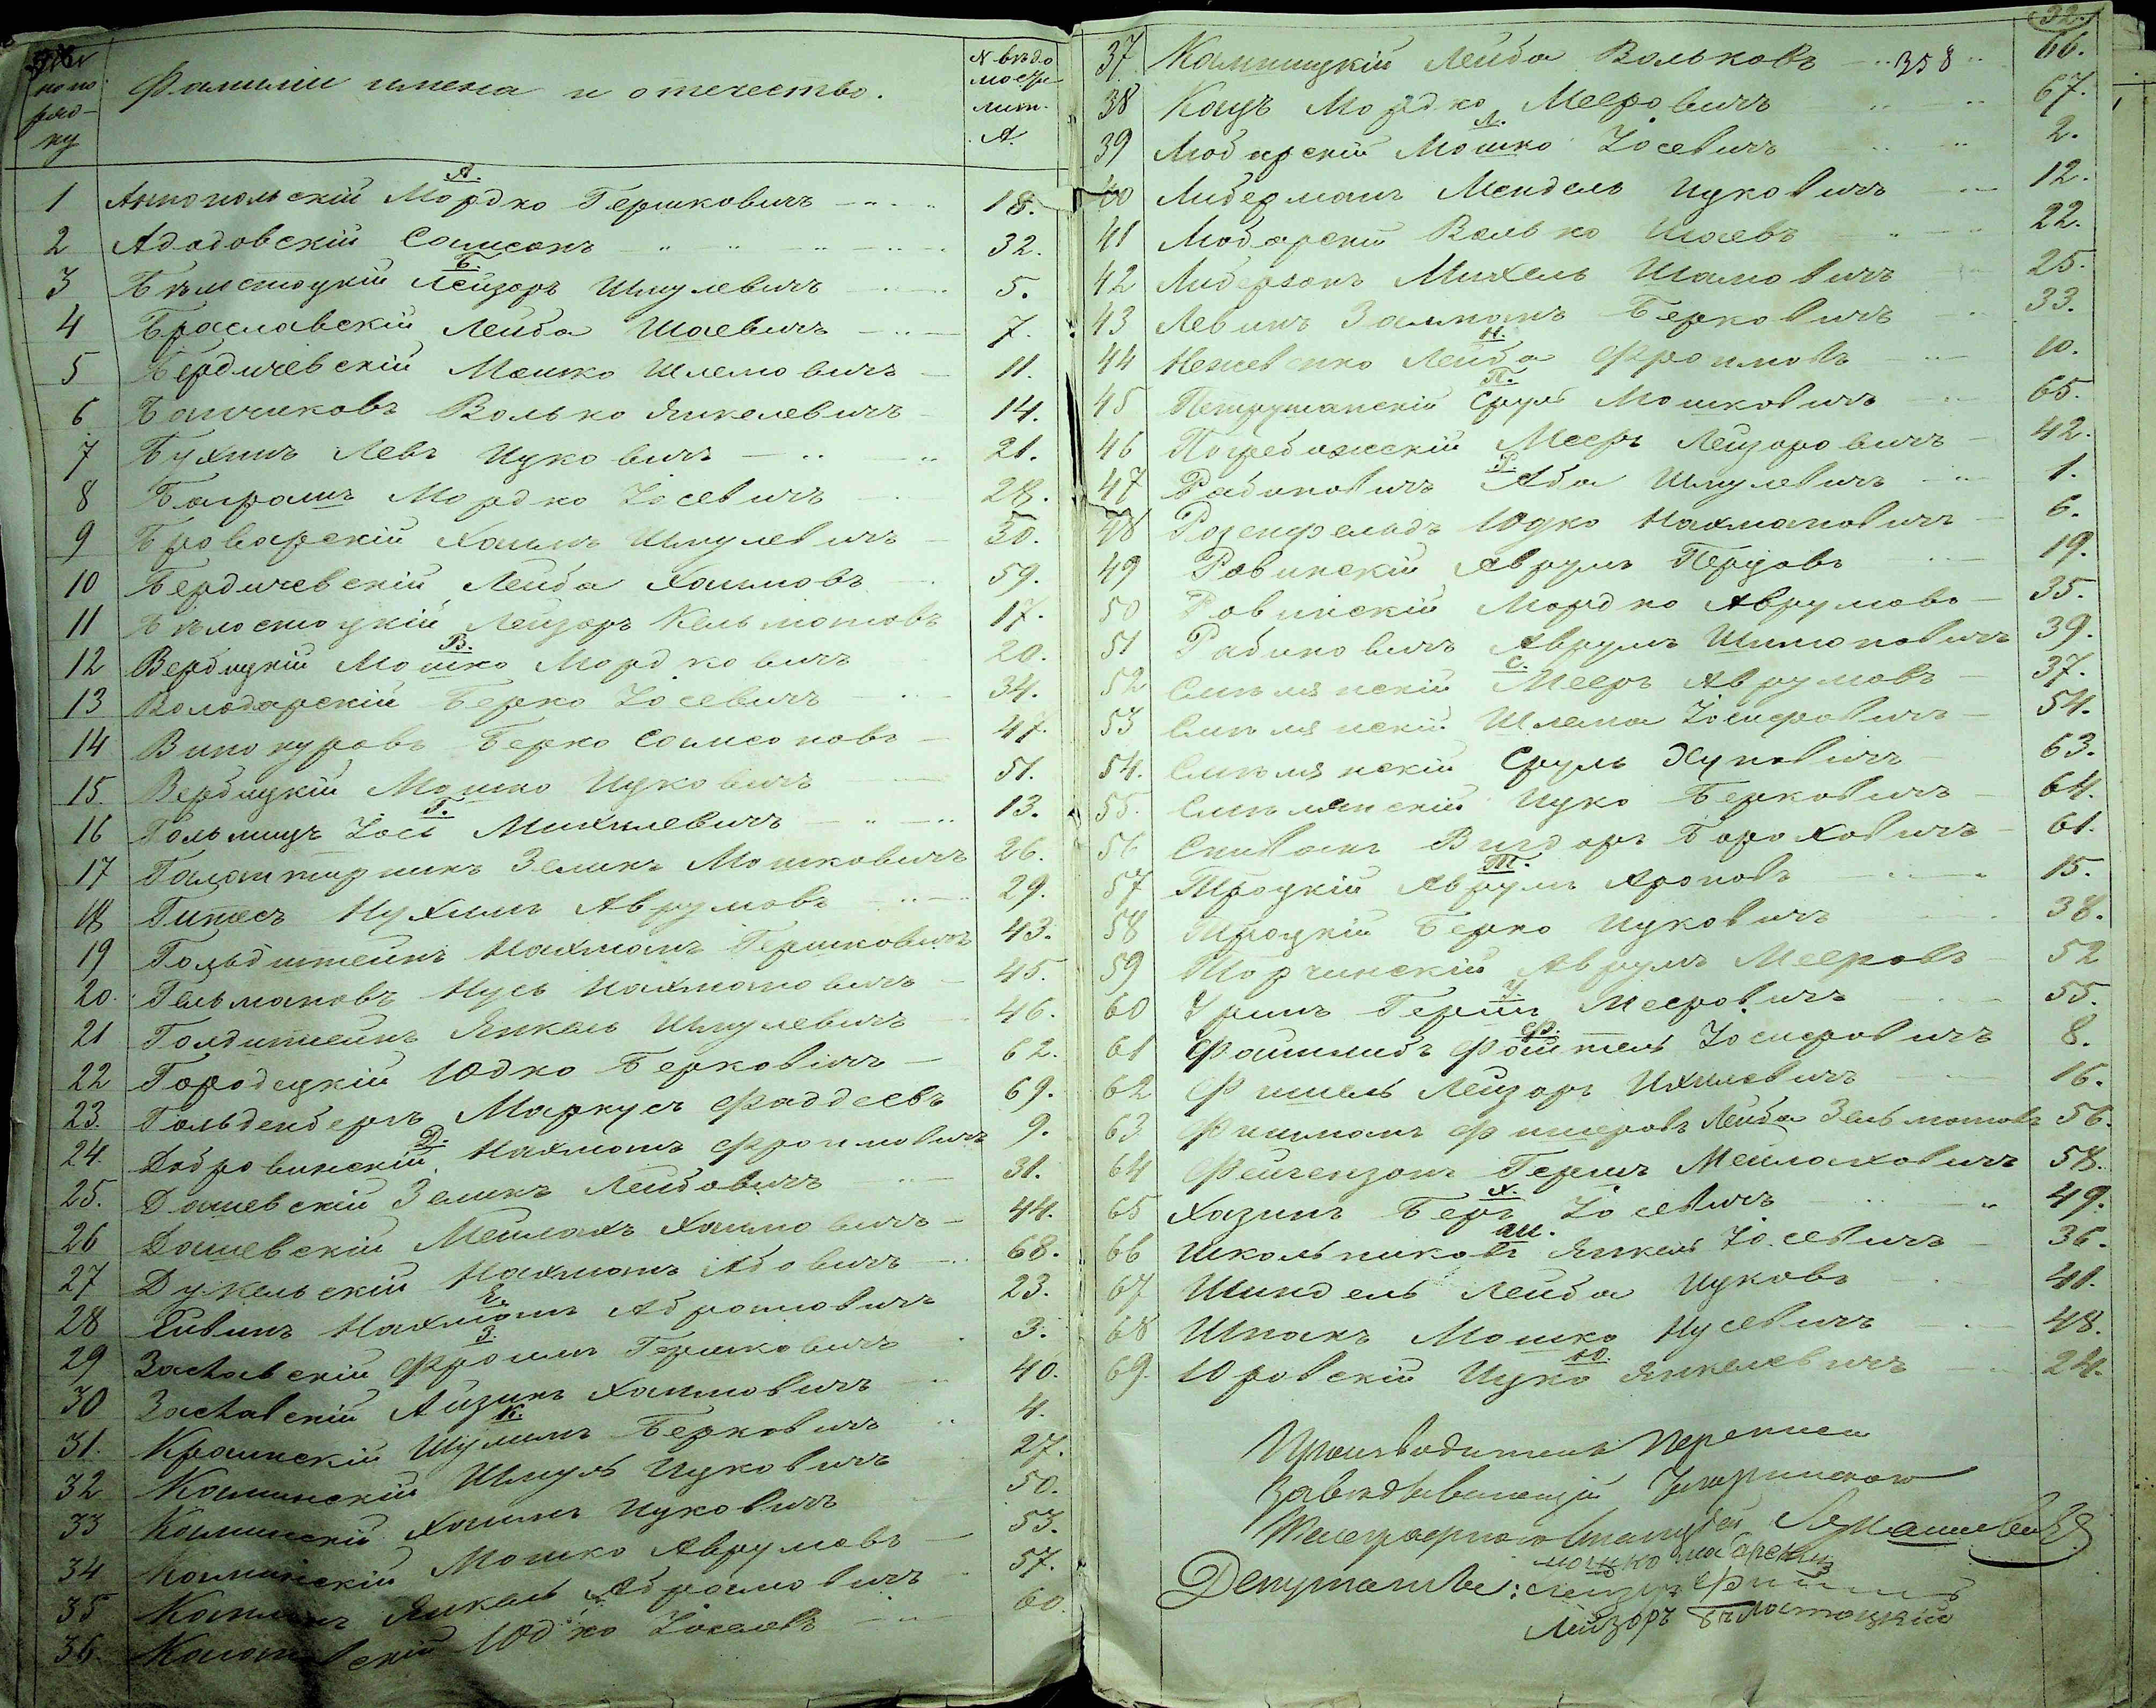 по по
ряд-
ку
Фамилии имена и отечество.
№ ведо
мости
лит.
А.
А.
1 Аннопольскій Мордко Гершковичъ 18.
2 Ададовскій Самсонъ 32.
Б.
3 Бѣлостоцкій Лейзоръ Шмулевичъ 5.
4 Браславскій Лейба Шаевичъ 7.
5 Бердичевскій Мошко Шлемовичъ 11.
6 Банчиковъ Волько Янкелевичъ 14.
7 Бухинъ Левъ Ицковичъ 21.
8 Мордко Іосевичъ 28.
9 Броварскій Хаимъ Шмулевичъ 30.
10 Бердичевскій Лейба Хаимовъ 59.
11 Бѣлостоцкій Лейзоръ Кельмановъ 17.
В.
12 Вербицкій Мошко Мордковичъ 20.
13 Володарскій Берко Іосевичъ 34.
14 Винокуровъ Берко Самсоновъ 47.
15 Вербицкій Мошко Ицковичъ 51.
Г.
16 Іось Михилевичъ 13.
17 Галантерникъ Зеликъ Мошковичъ 26.
18 Нухимъ Аврумовъ 29.
19 Гольдштейнъ Нахманъ Гершковичъ 43.
20. Гельмановъ Нусь Нахмановичъ 45.
21 Голдштейнъ Янкель Шмулевичъ 46.
22 Городецкій Юдко Берковичъ 62.
23. Гольденбергъ Маркусъ Фаддеевъ 69.
Д.
24. Добровинскій Нахманъ Фроимовичъ 9.
25. Дашевскій Зеликъ Лейбовичъ 31.
26 Дашевскій Мейлахъ Хаимовичъ 44.
27 Дукельскій Нахманъ Абовичъ 68.
Е.
28 Нахманъ Абрамовичъ 23.
З.
29 Заславскій Фроимъ Гершковичъ 3.
30 Заславскій Айзикъ Хаимовичъ 40.
К.
31. Краинскій Шулимъ Берковичъ 4.
32 Каминскій Шмуль Ицковичъ 27.
33 Каминскій Хаимъ Ицковичъ 50.
34 Каминскій Мошко Аврумовъ 53.
35 Капланъ Янкель Абрамовичъ 57.
36. Юдко 60.
32.
37 Камницкій Лейба Вольковъ 358 66.
38 Кацъ Мордко Мееровичъ 67.
Л.
39 Любарскій Мошко Іосевичъ 2.
40 Либерманъ Мендель Ицковичъ 12.
41 Любарскій Волько Шаевъ 22.
42 Либерзонъ Михель Шамовичъ 25.
43 Левинъ Залманъ Берковичъ 33.
Н.
44 Лейба Фроимовъ 10.
П.
45 Петрушанскій Сруль Мошковичъ 65.
46 Погребижскій Мееръ Лейзоровичъ 42.
Р.
47 Рабиновичъ Аба Шмулевичъ 1.
48 Розенфельдъ Юдко Нахмановичъ 6.
49 Ровинскій Аврумъ Перцовъ 19.
50 Ровинскій Мордко Аврумовъ 35.
51 Рабиновичъ Аврумъ Шимоновичъ 39.
С.
52 Смѣлянскій Мееръ Аврумовъ 37.
53 Смѣлянскій Шлема Іосифовичъ 54.
54. Смѣлянскій Сруль Хуновичъ 63.
55. Смѣлянскій Ицко Берковичъ 64.
56 Спивакъ Вигдоръ Бороховичъ 61.
Т.
57 Троцкій Аврумъ Ароновъ 15.
58 Троцкій Берко Ицковичъ 38.
59 Торчинскій Аврумъ Мееровъ 52
У.
60 Уринъ Гершъ Мееровичъ 55.
Ф.
61 Файтель Іосифовичъ 8.
62 Фишель Лейзоръ Ихилевичъ 16.
63 Фишманъ Фишеровъ Лейба Зельмановъ 56.
64 Гершъ Мейлаховичъ 58.
Х.
65 Хазинъ Беръ Іосевичъ 49.
Ш.
66 Школьниковъ Янкель Іосевичъ 36.
67 Шиндель Лейба Ицковъ 41.
68 Шпакъ Мошко Нусевичъ 48.
Ю.
69. Юровскій Ицко Янкелевичъ 24.
Производитель переписи
Завѣдывающій
Телеграфною Станціей
Депутаты:
Мошко Любарскій
Лейзоръ Фишель
Лейзоръ Бѣлостоцкій